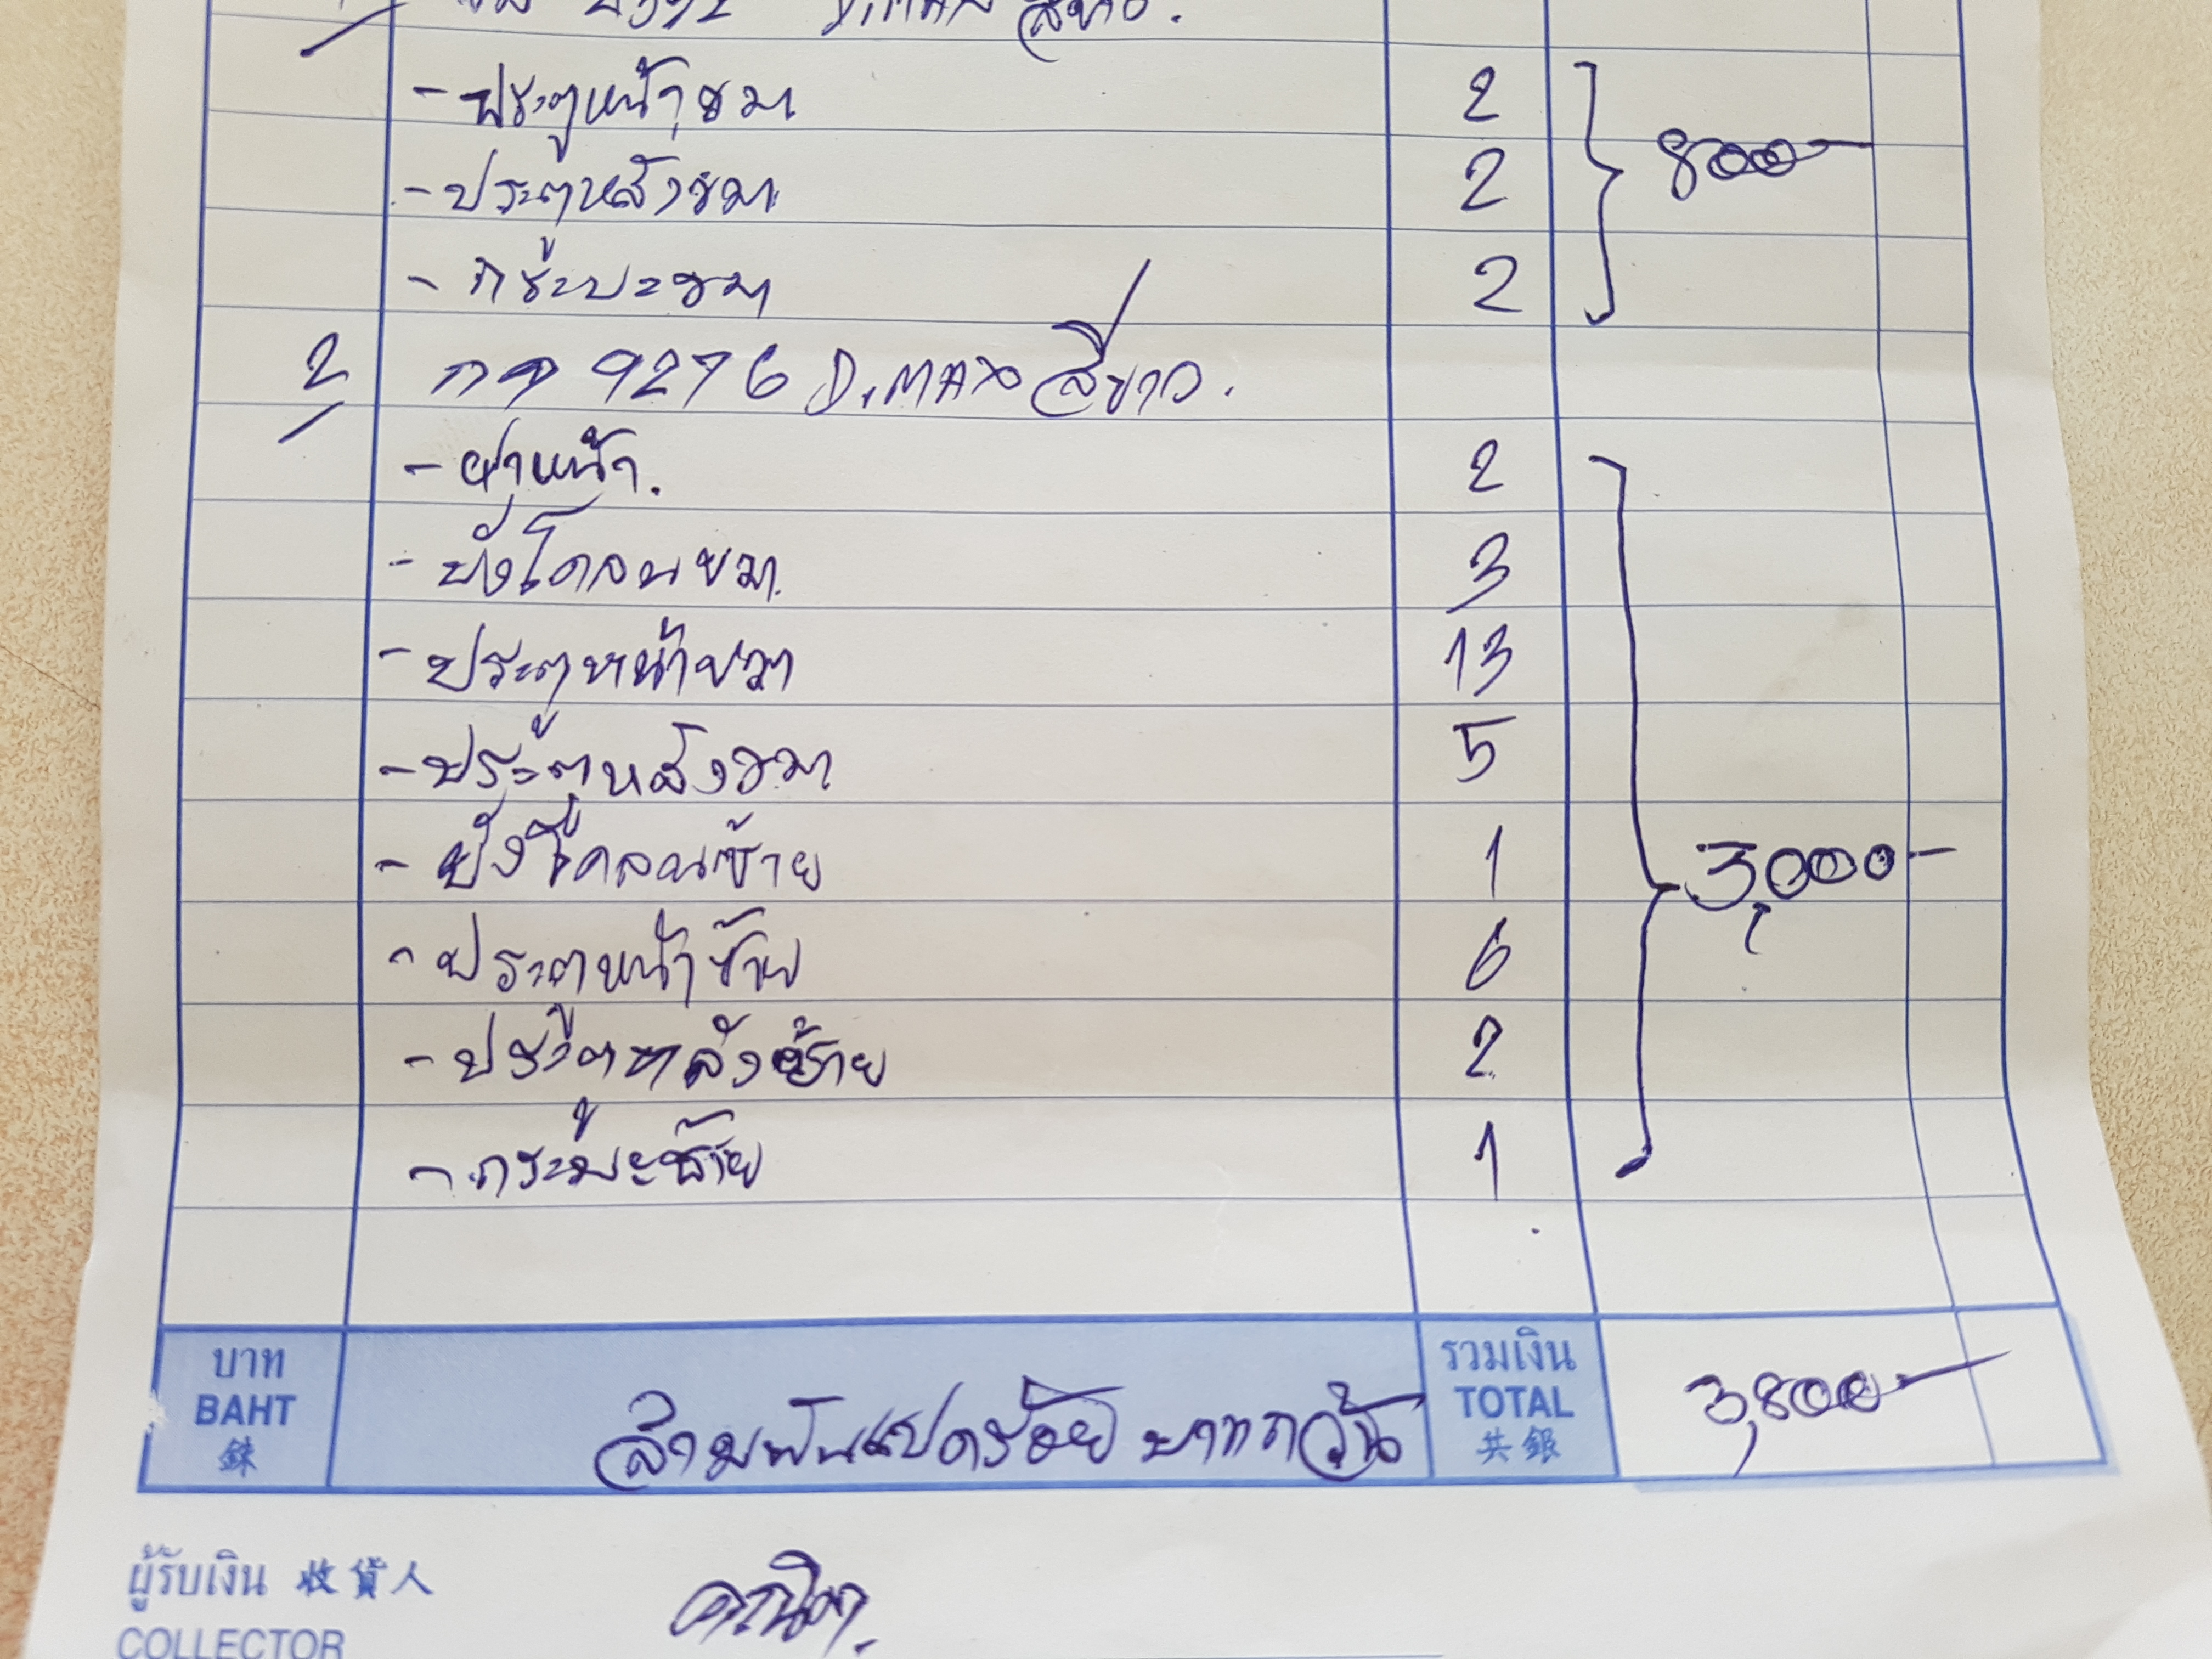 D.MAX สีขาว.
- ประตูหน้าขวา 2
- ประตูหลังขวา 2 800-
- กระบะขวา 2
2 กต 9276 D.MAX สีขาว.
- ฝาหน้า. 2
- บังโคลนขวา 3
- ประตูหน้าขวา 13
- ประตูหลังขวา 5
- บังโคลนซ้าย 1 3,000-
- ประตูหน้าซ้าย 6
- ประตูหลังซ้าย 2
- กระบะซ้าย 1
บาท รวมเงิน
BAHT สามพันแปดร้อยบาทถ้วน TOTAL 3,800-
銖 共銀
ผู้รับเงิน 收貨人
COLLECTOR